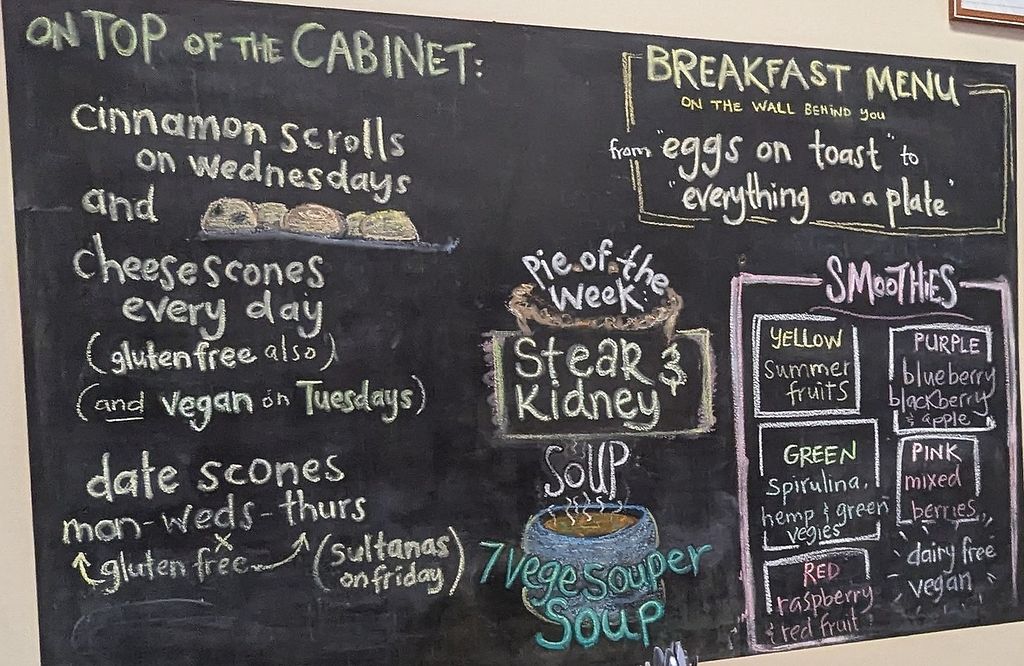 ON TOP OF THE CABINET:
cinnamon scrolls
on wednesdays
and
cheese scones
every day
(gluten free also)
(and vegan on Tuesdays)
date scones
mon-weds-thurs
gluten free
x
(sultanas
on friday)
BREAKFAST MENU
ON THE WALL BEHIND YOU
from "eggs on toast" to
"everything on a plate"
Pie of the
Week:
Steak &
Kidney
SOUP
7 Vege Souper
Soup
SMOOTHIES
YELLOW
Summer
fruits
PURPLE
blueberry
blackberry
& apple
GREEN
Spirulina,
hemp & green
vegies
PINK
mixed
berries
RED
raspberry
& red fruit
dairy free
vegan